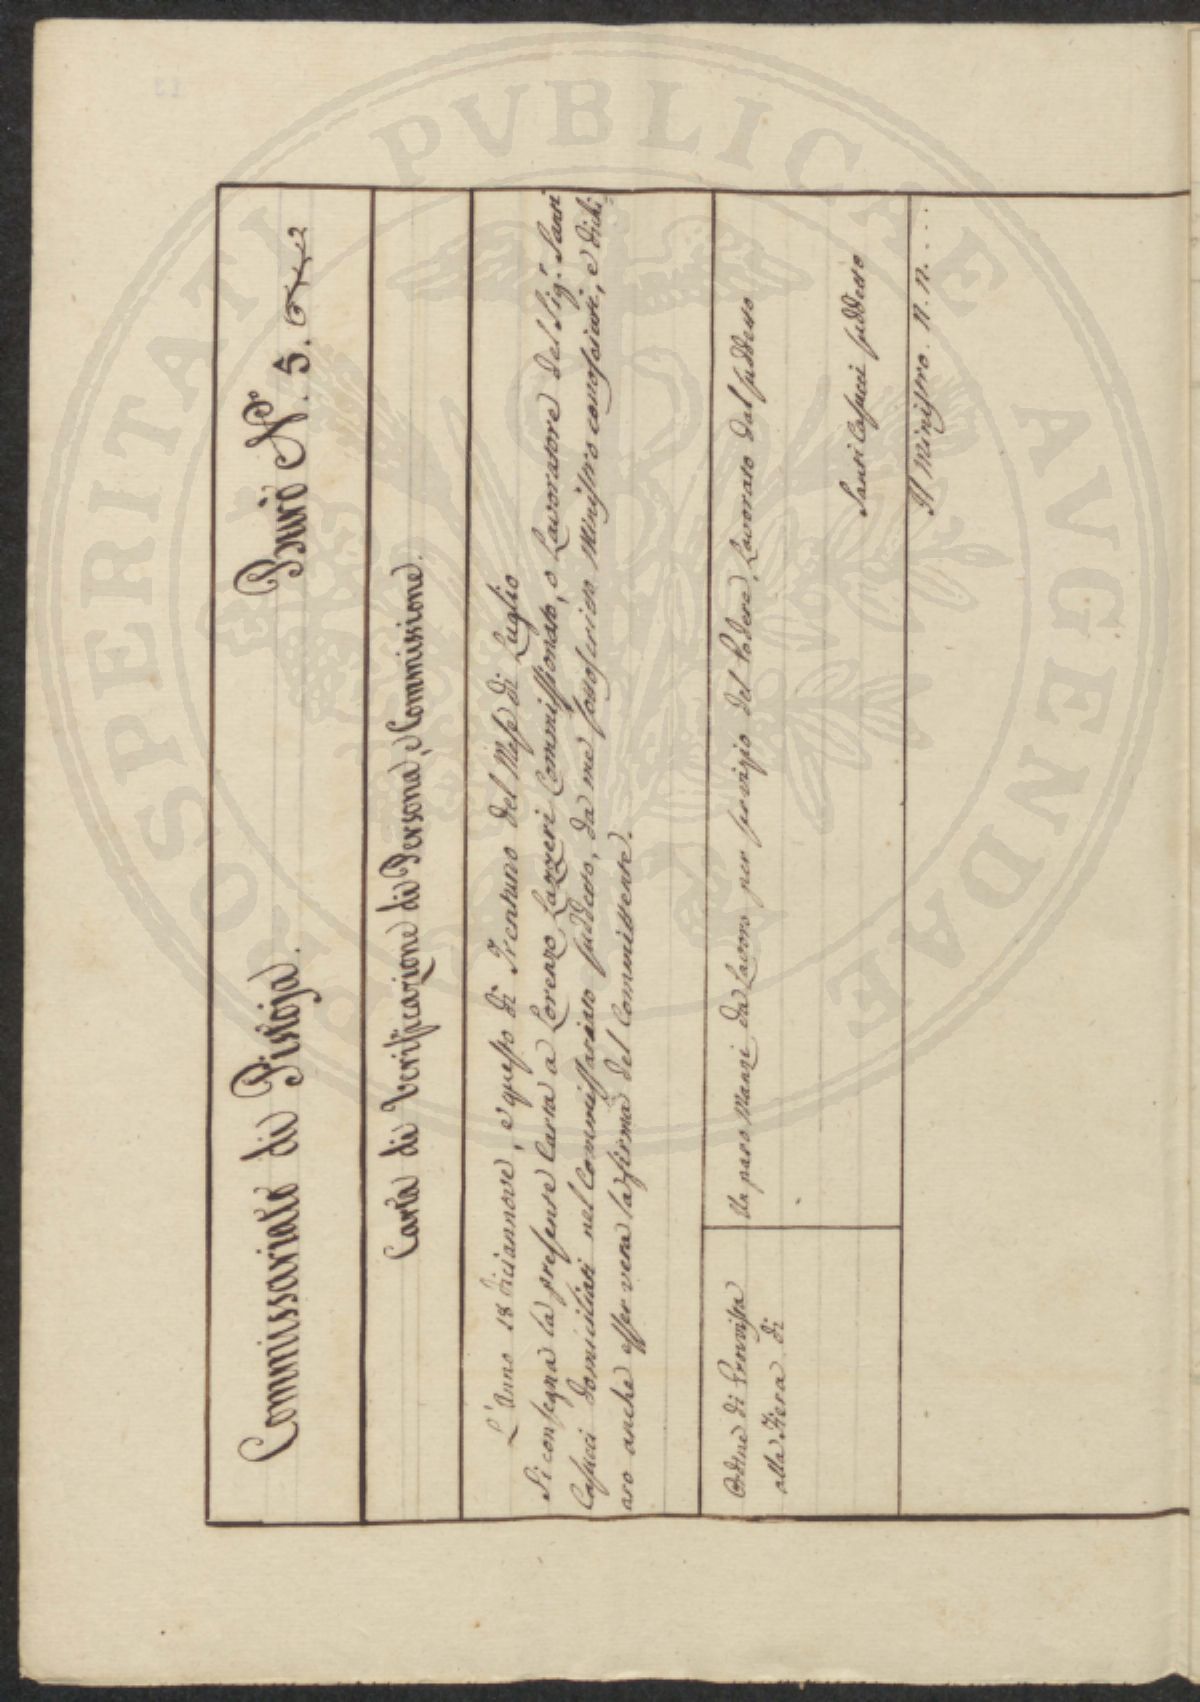 Commissariato di Pistoja. Buvio N.ro 5.
Carta di Verificazione di Persona, e Commissione.
L'Anno 18 diciannove, e questo di Trentuno del Mese di Luglio
Si consegna la presente Carta a Lorenzo Lazzeri Commissionato, o Lavoratore del Sig.r Santi
Casucci domiciliati nel Commissariato suddetto, da me sottoscritto Ministro conosciuti, e dichi-
aro anche esser vera la firma del Committente.
Ordine di Provvista
alla Fiera di
Un paro Manzi da Lavoro per servizio del Podere, Lavorato dal suddetto
Santi Casucci suddetto
Il Ministro. N. N. . . .
PROSPERITATI PVBLICAE AVGENDAE